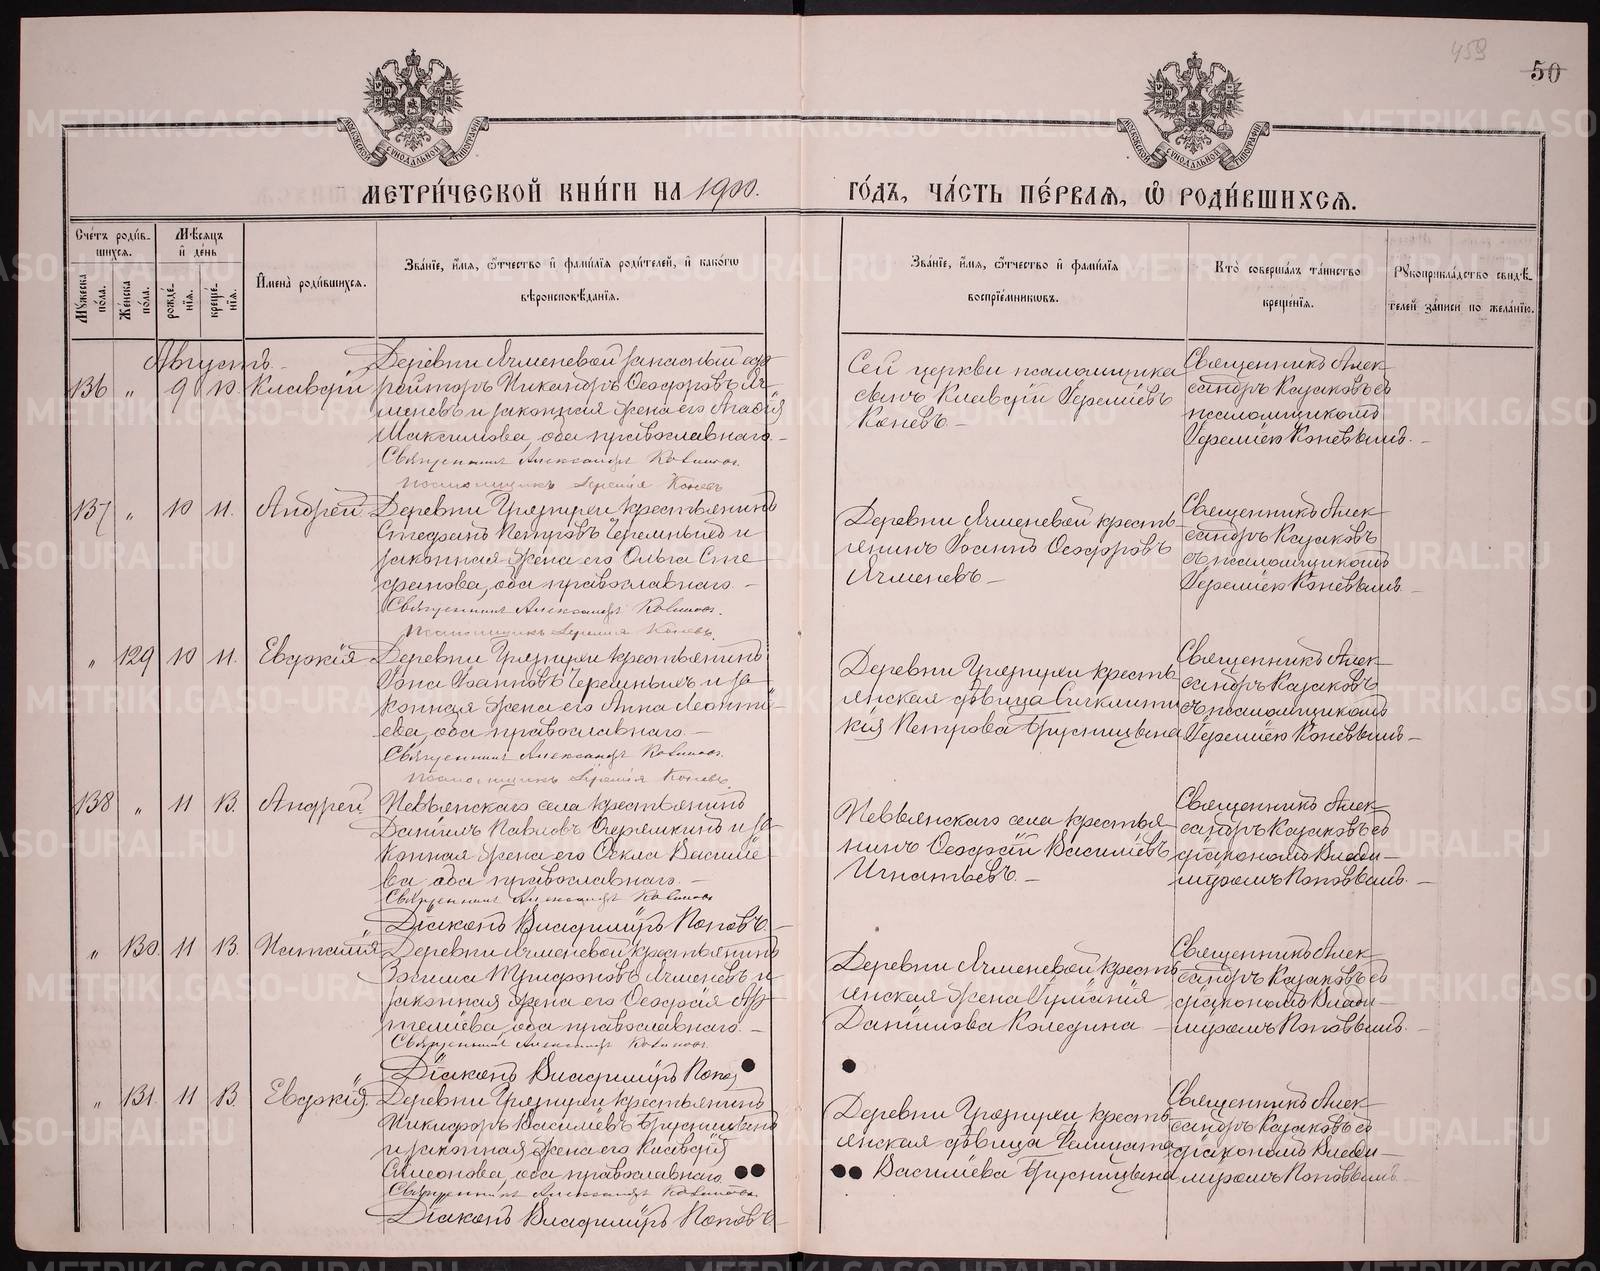 459
50
МЕТРИ́ЧЕСКОЙ КНИ́ГИ НА 1900.
ГО́ДЪ, ЧА́СТЬ ПЕ́РВАЯ, Ѡ҆ РОДИ́ВШИХСЯ.
Сче́тъ роди́в-
шихся.
Мѣ́сяцъ
и҆ де́нь
Му́жеска
по́ла.
Же́нска
по́ла.
рожде́-
нїя.
креще́-
нїя.
И҆мена̀ роди́вшихся.
Зва́нїе, и҆́мя, ѻ҆́тчество и҆ фами́лїя роди́телей, и҆ како́гѡ
вѣроисповѣ́данїя.
Зва́нїе, и҆́мя, ѻ҆́тчество и҆ фами́лїя
воспрїе́мниковъ.
Кто̀ соверша́лъ та́инство
креще́нїя.
Рꙋкоприкла́дство свидѣ́-
телей за́писи по жела́нїю.
Августъ.
136 " 9 10. Клавдій
Деревни Ячменевой запасный еф-
рейторъ Никандръ Ѳеодоровъ Яч-
меневъ и законная жена его Агафія
Максимова, оба православнаго.
Священникъ Александръ
Псаломщикъ Іеремія Коневъ
Сей церкви псаломщика
сынъ Клавдій Іереміевъ
Коневъ
Священникъ Алек-
сандръ Казаковъ съ
псаломщикомъ
Іереміею Коневымъ.
137 " 10 11. Андрей
Деревни крестьянинъ
Стефанъ Петровъ Черемныхъ и
законная жена его Ольга Сте-
фанова, оба православнаго.
Священникъ Александръ
Псаломщикъ Іеремія Коневъ.
Деревни Ячменевой кресть-
янинъ Іоаннъ Ѳеодоровъ
Ячменевъ
Священникъ Алек-
сандръ Казаковъ
съ псаломщикомъ
Іереміею Коневымъ.
" 129 10 11. Евдокія
Деревни крестьянинъ
Іона Іоанновъ Черемныхъ и за-
конная жена его Анна Леонті-
ева, оба православнаго.
Священникъ Александръ
Псаломщикъ Іеремія Коневъ
Деревни кресть-
янская дѣвица Сигклити-
кія Петрова Брусницына
Священникъ Алек-
сандръ Казаковъ
съ псаломщикомъ
Іереміею Коневымъ
138 " 11 13. Андрей
Невьянскаго села крестьянинъ
Даніилъ Павловъ и за-
конная жена его Ѳекла Василіе-
ва, оба православнаго.
Священникъ Александръ
Діаконъ Владиміръ Поповъ.
Невьянскаго села крестья-
нинъ Ѳеодосій Василіевъ
Игнатьевъ.
Священникъ Алек-
сандръ Казаковъ съ
діакономъ Влади-
міромъ Поповымъ.
" 130. 11 13. Наталія
Деревни Ячменевой крестьянинъ
Зосима Трифоновъ Ячменевъ и
законная жена его Ѳеодосія Ар-
теміева, оба православнаго.
Священникъ Александръ
Діаконъ Владиміръ Попов
Деревни Ячменевой кресть-
янская жена Іуліанія
Даніилова Коледина
Священникъ Алек-
сандръ Казаковъ съ
діакономъ Влади-
міромъ Поповымъ.
" 131. 11 13. Евдокія.
Деревни крестьянинъ
Никифоръ Василіевъ Брусницынъ
и законная жена его Клавдія
Симеонова, оба православнаго
Священникъ Александръ
Діаконъ Владиміръ Поповъ
Деревни кресть-
янская дѣвица
Василіева Брусницына
Священникъ Алек-
сандръ Казаковъ съ
діакономъ Влади-
міромъ Поповымъ.
METRIKI.GASO-URAL.RU